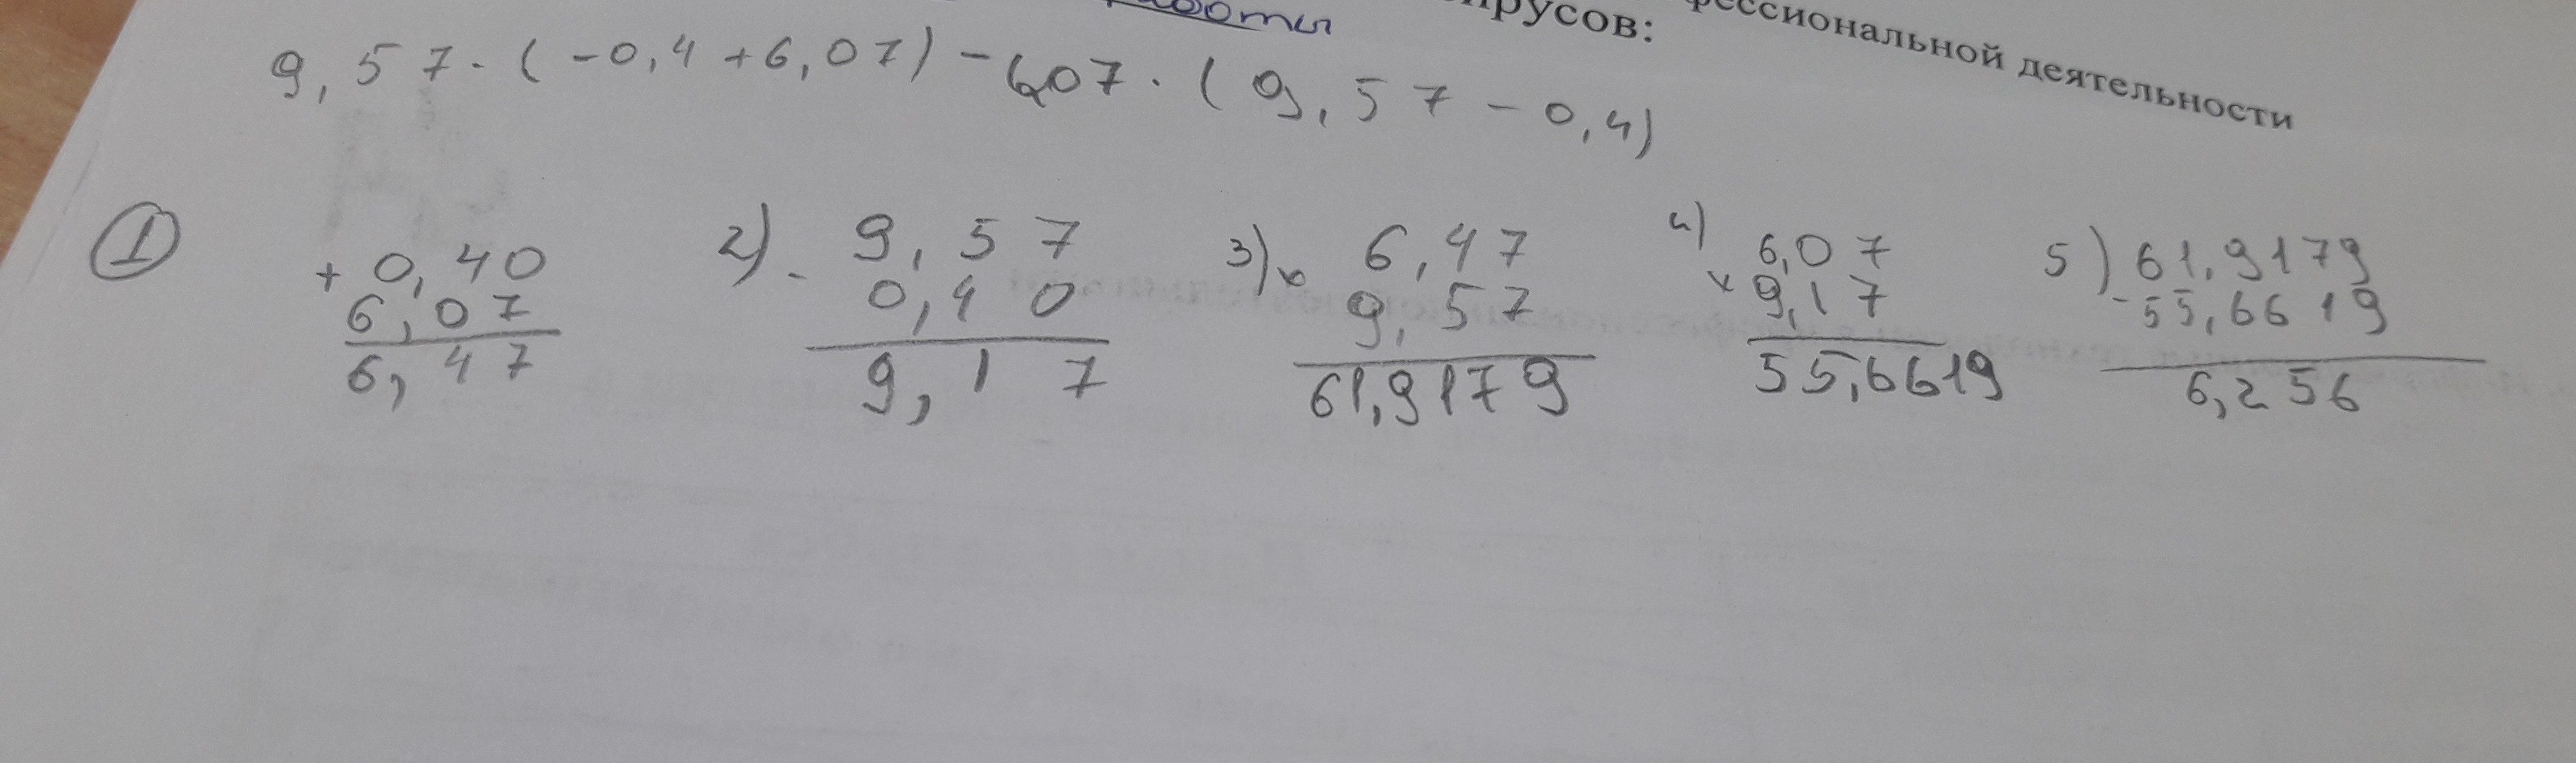 ессиональной деятельности
русов:
9,57·(-0,4+6,07)-6,07·(9,57-0,4)
① + 0,40
6,07
6,47
2) - 9,57
0,40
9,17
3) × 6,47
9,57
61,9179
4) × 6,07
9,17
55,6619
5) 61,9179
- 55,6619
6,256